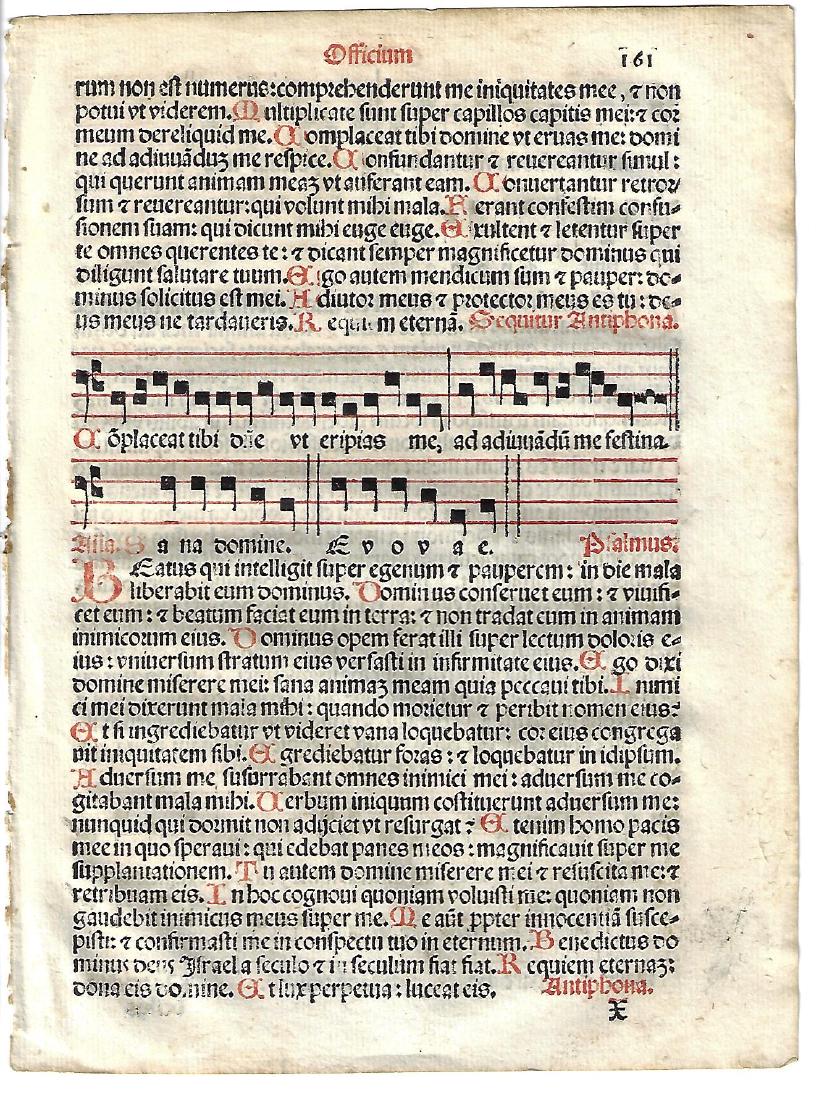 Officium 161
rum non est numerus: comprehenderunt me iniquitates mee, ⁊ non
potui vt viderem. Multiplicate sunt super capillos capitis mei: ⁊ cor
meum dereliquid me. Complaceat tibi domine vt eruas me: domi
ne ad adiuuãduʒ me respice. Confundantur ⁊ reuereantur simul:
qui querunt animam meaʒ vt auferant eam. Conuertantur retror/
sum ⁊ reuereantur: qui volunt mihi mala. Ferant confestim confu-
sionem suam: qui dicunt mihi euge euge. Exultent ⁊ letentur super
te omnes querentes te: ⁊ dicant semper magnificetur dominus qui
diligunt salutare tuum. Ego autem mendicum sum ⁊ pauper: do-
minus solicitus est mei. Adiutor meus ⁊ protector meus es tu: de-
us meus ne tardaueris. Requiem eternã. Sequitur Antiphona.
Cõplaceat tibi dñe vt eripias me, ad adiuuãdũ me festina.
Aña. Sana domine. Evovae. Psalmus.
BEatus qui intelligit super egenum ⁊ pauperem: in die mala
liberabit eum dominus. Dominus conseruet eum: ⁊ viuifi-
cet eum: ⁊ beatum faciat eum in terra: ⁊ non tradat eum in animam
inimicorum eius. Dominus opem ferat illi super lectum doloris e-
ius: vniuersum stratum eius versasti in infirmitate eius. Ego dixi
domine miserere mei: sana animaʒ meam quia peccaui tibi. Inimi
ci mei dixerunt mala mihi: quando morietur ⁊ peribit nomen eius?
Et si ingrediebatur vt videret vana loquebatur: cor eius congrega
uit iniquitatem sibi. Egrediebatur foras: ⁊ loquebatur in idipsum.
Aduersum me susurrabant omnes inimici mei: aduersum me co-
gitabant mala mihi. Uerbum iniquum cõstituerunt aduersum me:
nunquid qui dormit non adijciet vt resurgat? Etenim homo pacis
mee in quo speraui: qui edebat panes meos: magnificauit super me
supplantationem. Tu autem domine miserere mei ⁊ resuscita me: ⁊
retribuam eis. In hoc cognoui quoniam voluisti me: quoniam non
gaudebit inimicus meus super me. Me aũt ppter innocentiã susce-
pisti: ⁊ confirmasti me in conspectu tuo in eternum. Benedictus do
minus deus Israel a seculo ⁊ in seculum fiat fiat. Requiem eternaʒ:
dona eis domine. Et lux perpetua: luceat eis. Antiphona.
X